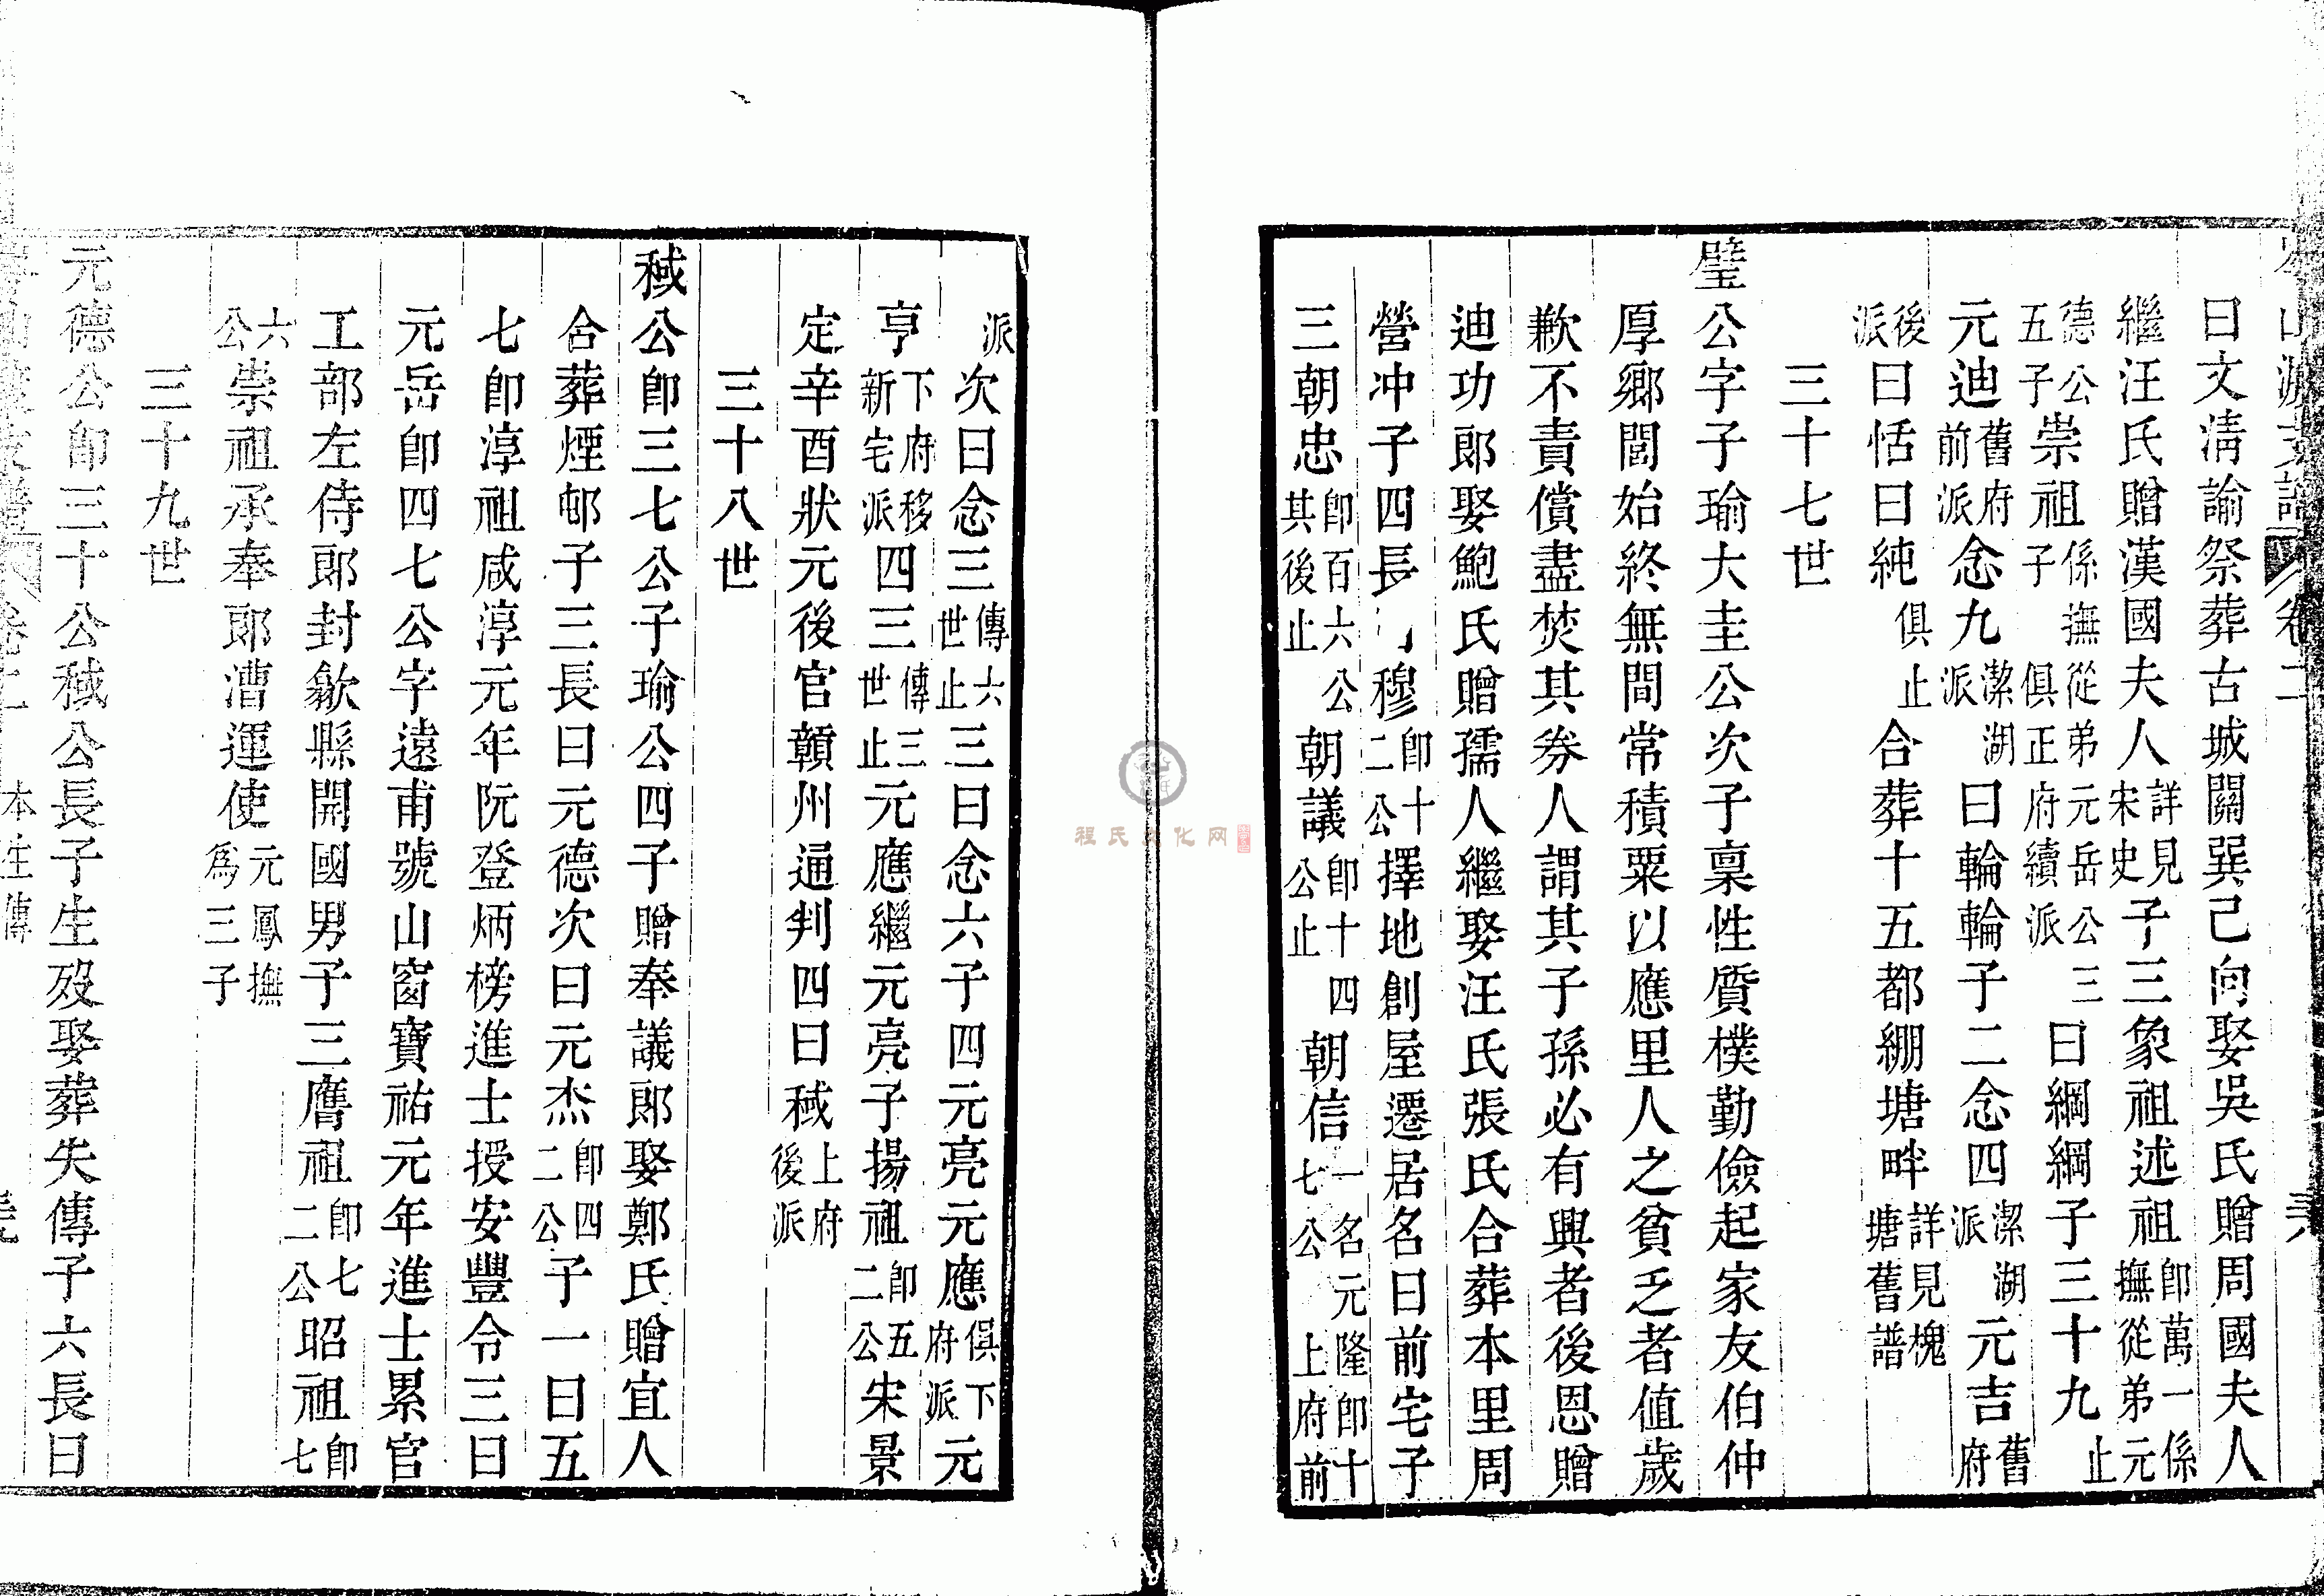 山派支譜 卷二
曰文淸諭祭葬古城關巽己向娶吳氏贈周國夫人
繼汪氏贈漢國夫人詳見宋史子三象祖述祖卽萬一係撫從弟元
德公五子崇祖係撫從弟元岳公子俱正府續派三曰綱綱子三十九止
元迪舊府前派念九潔湖派曰輪輪子二念四潔湖派元吉舊府
後派曰恬曰純俱止合葬十五都綳塘畔詳見槐塘舊譜
三十七世
璧公字子瑜大圭公次子稟性質樸勤儉起家友伯仲
厚鄉閭始終無間常積粟以應里人之貧乏者值歲
歉不責償盡焚其券人謂其子孫必有興者後恩贈
迪功郞娶鮑氏贈孺人繼娶汪氏張氏合葬本里周
營冲子四長 穆卽十二公擇地創屋遷居名曰前宅子
三朝忠卽百六公其後止朝議卽十四公止朝信一名元隆卽十七公上府前
派次曰念三傳六世止三曰念六子四元亮元應俱下府派元
亨下府移新宅派四三傳三世止元應繼元亮子揚祖卽五二公宋景
定辛酉狀元後官贛州通判四曰稢上府後派
三十八世
稢公卽三七公子瑜公四子贈奉議郞娶鄭氏贈宜人
合葬煙邨子三長曰元德次曰元杰卽四二公子一曰五
七卽淳祖咸淳元年阮登炳榜進士授安豐令三曰
元岳卽四七公字遠甫號山窗寶祐元年進士累官
工部左侍郞封歙縣開國男子三膺祖卽七二公昭祖卽七
六公崇祖承奉郞漕運使元鳳撫爲三子
三十九世
元德公卽三十公稢公長子生歿娶葬失傳子六長曰
卷二 本生傳
程氏文化网